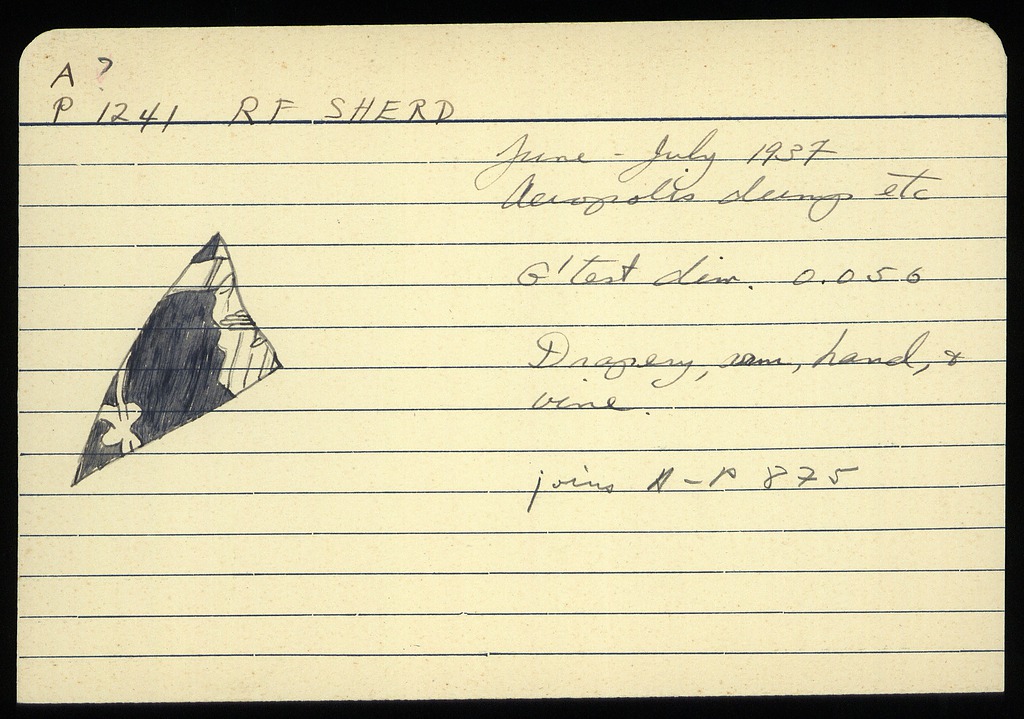 A ?
P 1241 RF SHERD
June - July 1937
Acropolis dump etc
G'test dim. 0.056
Drapery, arm, hand, &
vine.
joins A-P 875